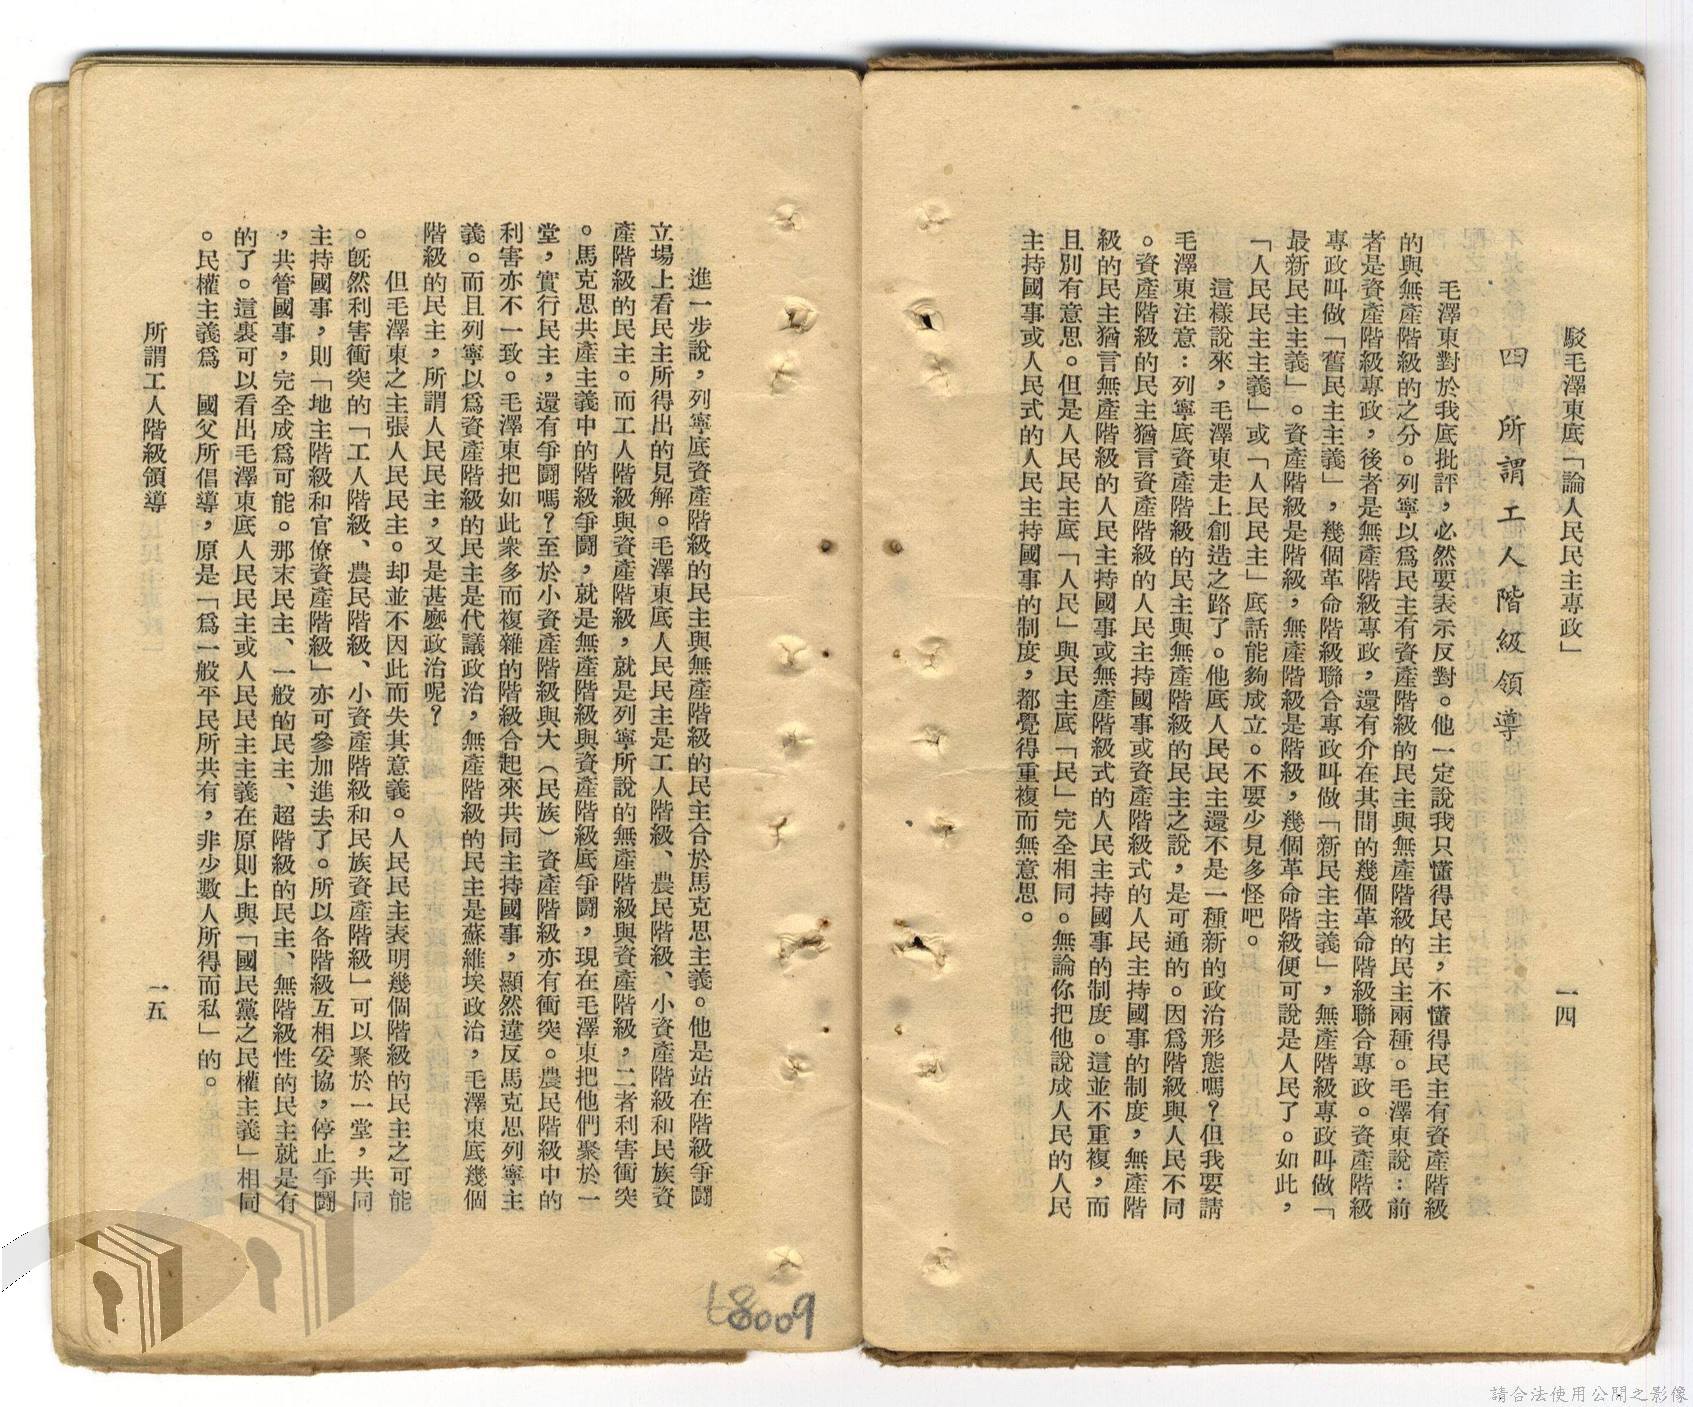 駁毛澤東底「論人民民主專政」
一四
四　所謂工人階級領導
毛澤東對於我底批評，必然要表示反對。他一定說我只懂得民主，不懂得民主有資產階級
的與無產階級的之分。列寧以爲民主有資產階級的民主與無產階級的民主兩種。毛澤東說：前
者是資產階級專政，後者是無產階級專政，還有介在其間的幾個革命階級聯合專政。資產階級
專政叫做「舊民主主義」，幾個革命階級聯合專政叫做「新民主主義」，無產階級專政叫做「
最新民主主義」。資產階級是階級，無產階級是階級，幾個革命階級便可說是人民了。如此，
「人民民主主義」或「人民民主」底話能夠成立。不要少見多怪吧。
這樣說來，毛澤東走上創造之路了。他底人民民主還不是一種新的政治形態嗎？但我要請
毛澤東注意：列寧底資產階級的民主與無產階級的民主之說，是可通的。因爲階級與人民不同
。資產階級的民主猶言資產階級的人民主持國事或資產階級式的人民主持國事的制度，無產階
級的民主猶言無產階級的人民主持國事或無產階級式的人民主持國事的制度。這並不重複，而
且別有意思。但是人民民主底「人民」與民主底「民」完全相同。無論你把他說成人民的人民
主持國事或人民式的人民主持國事的制度，都覺得重複而無意思。
進一步說，列寧底資產階級的民主與無產階級的民主合於馬克思主義。他是站在階級爭鬪
立場上看民主所得出的見解。毛澤東底人民民主是工人階級、農民階級、小資產階級和民族資
產階級的民主。而工人階級與資產階級，就是列寧所說的無產階級與資產階級，二者利害衝突
。馬克思共產主義中的階級爭鬪，就是無產階級與資產階級底爭鬪，現在毛澤東把他們聚於一
堂，實行民主，還有爭鬪嗎？至於小資產階級與大（民族）資產階級亦有衝突。農民階級中的
利害亦不一致。毛澤東把如此衆多而複雜的階級合起來共同主持國事，顯然違反馬克思列寧主
義。而且列寧以爲資產階級的民主是代議政治，無產階級的民主是蘇維埃政治，毛澤東底幾個
階級的民主，所謂人民民主，又是甚麼政治呢？
但毛澤東之主張人民民主。却並不因此而失其意義。人民民主表明幾個階級的民主之可能
。旣然利害衝突的「工人階級、農民階級、小資產階級和民族資產階級」可以聚於一堂，共同
主持國事，則「地主階級和官僚資產階級」亦可參加進去了。所以各階級互相妥協，停止爭鬪
，共管國事，完全成爲可能。那末民主、一般的民主、超階級的民主、無階級性的民主就是有
的了。這裏可以看出毛澤東底人民民主或人民民主主義在原則上與「國民黨之民權主義」相同
。民權主義爲　國父所倡導，原是「爲一般平民所共有，非少數人所得而私」的。
所謂工人階級領導
一五
t8009
請合法使用公開之影像